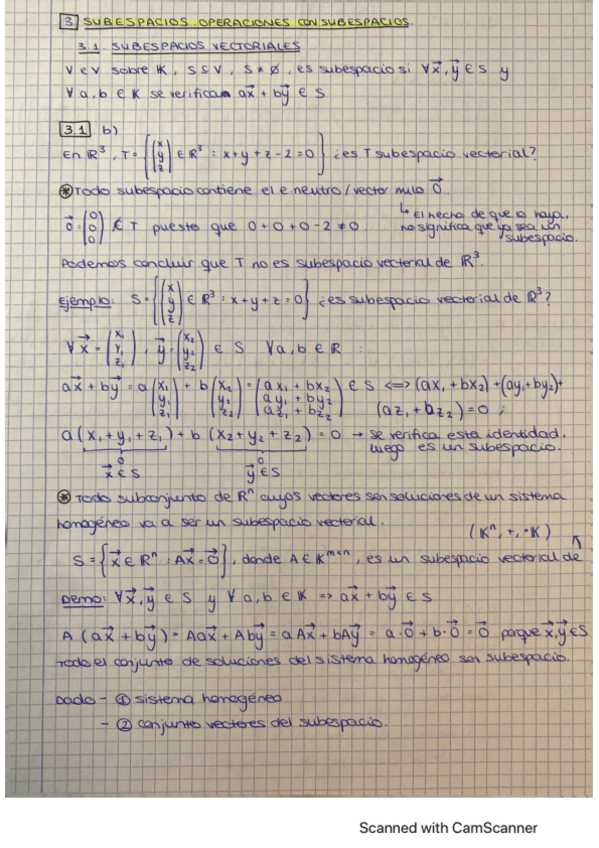 3 SUBESPACIOS. OPERACIONES CON SUBESPACIOS.
3.1. SUBESPACIOS VECTORIALES
V e V sobre K, S ⊆ V, S ≠ ∅, es subespacio si ∀x⃗, y⃗ ∈ S y
∀a, b ∈ K se verifica ax⃗ + by⃗ ∈ S
3.1 b)
En R³, T = {(x y z) ∈ R³ : x+y+z-2=0} ¿es T subespacio vectorial?
* Todo subespacio contiene el e. neutro/vector nulo 0⃗.
↳ El hecho de que lo haya,
0⃗ = (0 0 0) ∉ T puesto que 0+0+0-2 ≠ 0. no significa que ya sea un
subespacio.
Podemos concluir que T no es subespacio vectorial de R³.
Ejemplo: S = {(x y z) ∈ R³ : x+y+z=0} ¿es subespacio vectorial de R³?
∀x⃗ = (x₁ y₁ z₁), y⃗ = (x₂ y₂ z₂) ∈ S ∀a, b ∈ R :
ax⃗ + by⃗ = a(x₁ y₁ z₁) + b(x₂ y₂ z₂) = (ax₁+bx₂ ay₁+by₂ az₁+bz₂) ∈ S <=> (ax₁+bx₂)+(ay₁+by₂)+
(az₁+bz₂)=0 ;
a(x₁+y₁+z₁)+b(x₂+y₂+z₂)=0 → se verifica esta identidad,
luego es un subespacio.
0 0
x⃗ ∈ S y⃗ ∈ S
* Todo subconjunto de Rⁿ cuyos vectores son soluciones de un sistema
homogéneo va a ser un subespacio vectorial.
(Kⁿ, +, ·K)
S = {x⃗ ∈ Rⁿ : Ax⃗ = 0⃗}, donde A ∈ Kᵐˣⁿ, es un subespacio vectorial de
Demo: ∀x⃗, y⃗ ∈ S y ∀a, b ∈ K => ax⃗ + by⃗ ∈ S
A(ax⃗ + by⃗) = Aax⃗ + Aby⃗ = aAx⃗ + bAy⃗ = a·0⃗ + b·0⃗ = 0⃗ porque x⃗, y⃗ ∈ S
Todo el conjunto de soluciones del sistema homogéneo son subespacio.
Dado - ① sistema homogéneo
- ② conjunto vectores del subespacio.
Scanned with CamScanner